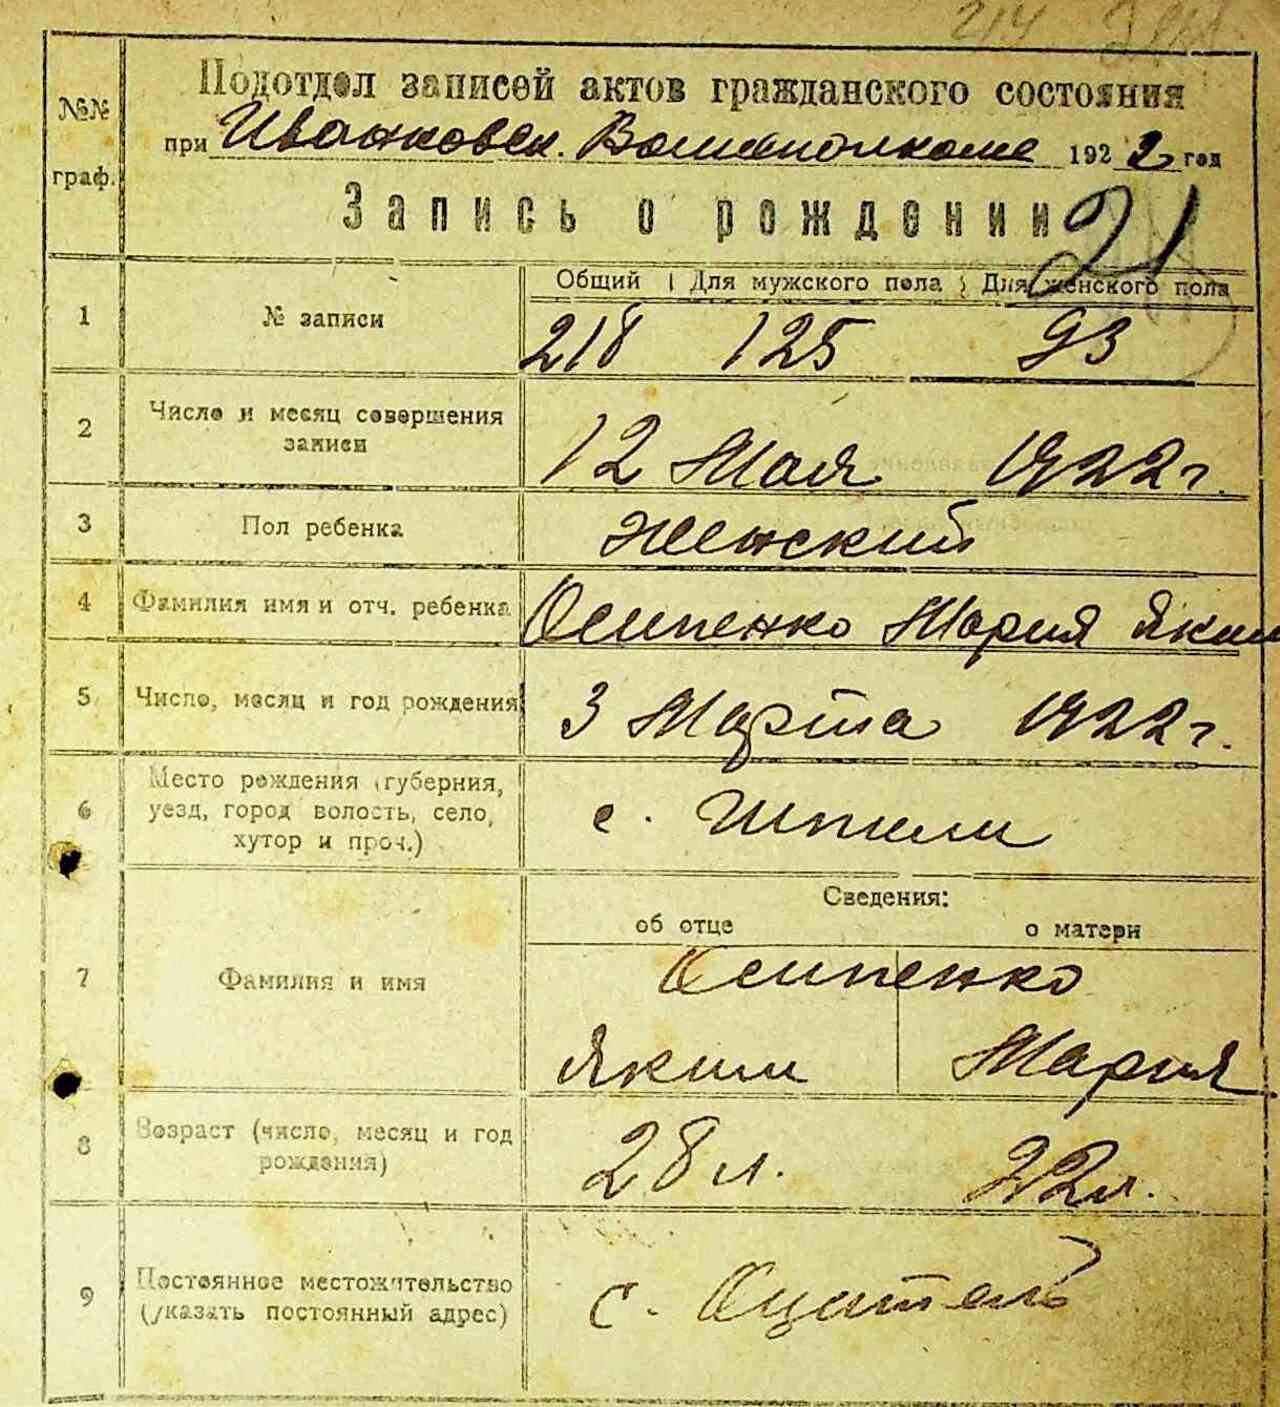 214
№№ граф.
Подотдел записей актов гражданского состояния
при Иванковск. Волисполкоме 1922 год
Запись о рождении
21
Общий Для мужского пола Для женского пола
1 № записи 218 125 93
2 Число и месяц совершения записи 12 Мая 1922 г.
3 Пол ребенка Женский
4 Фамилия имя и отч. ребенка Осипенко Мария Яким
5 Число, месяц и год рождения 3 Марта 1922 г.
6 Место рождения (губерния,
уезд, город волость, село,
хутор и проч.)
с. Шпили
Сведения:
об отце о матери
7 Фамилия и имя Осипенко
Яким Мария
8 Возраст (число, месяц и год
рождения)
28 л. 22 л.
9 Постоянное местожительство
(указать постоянный адрес)
с.